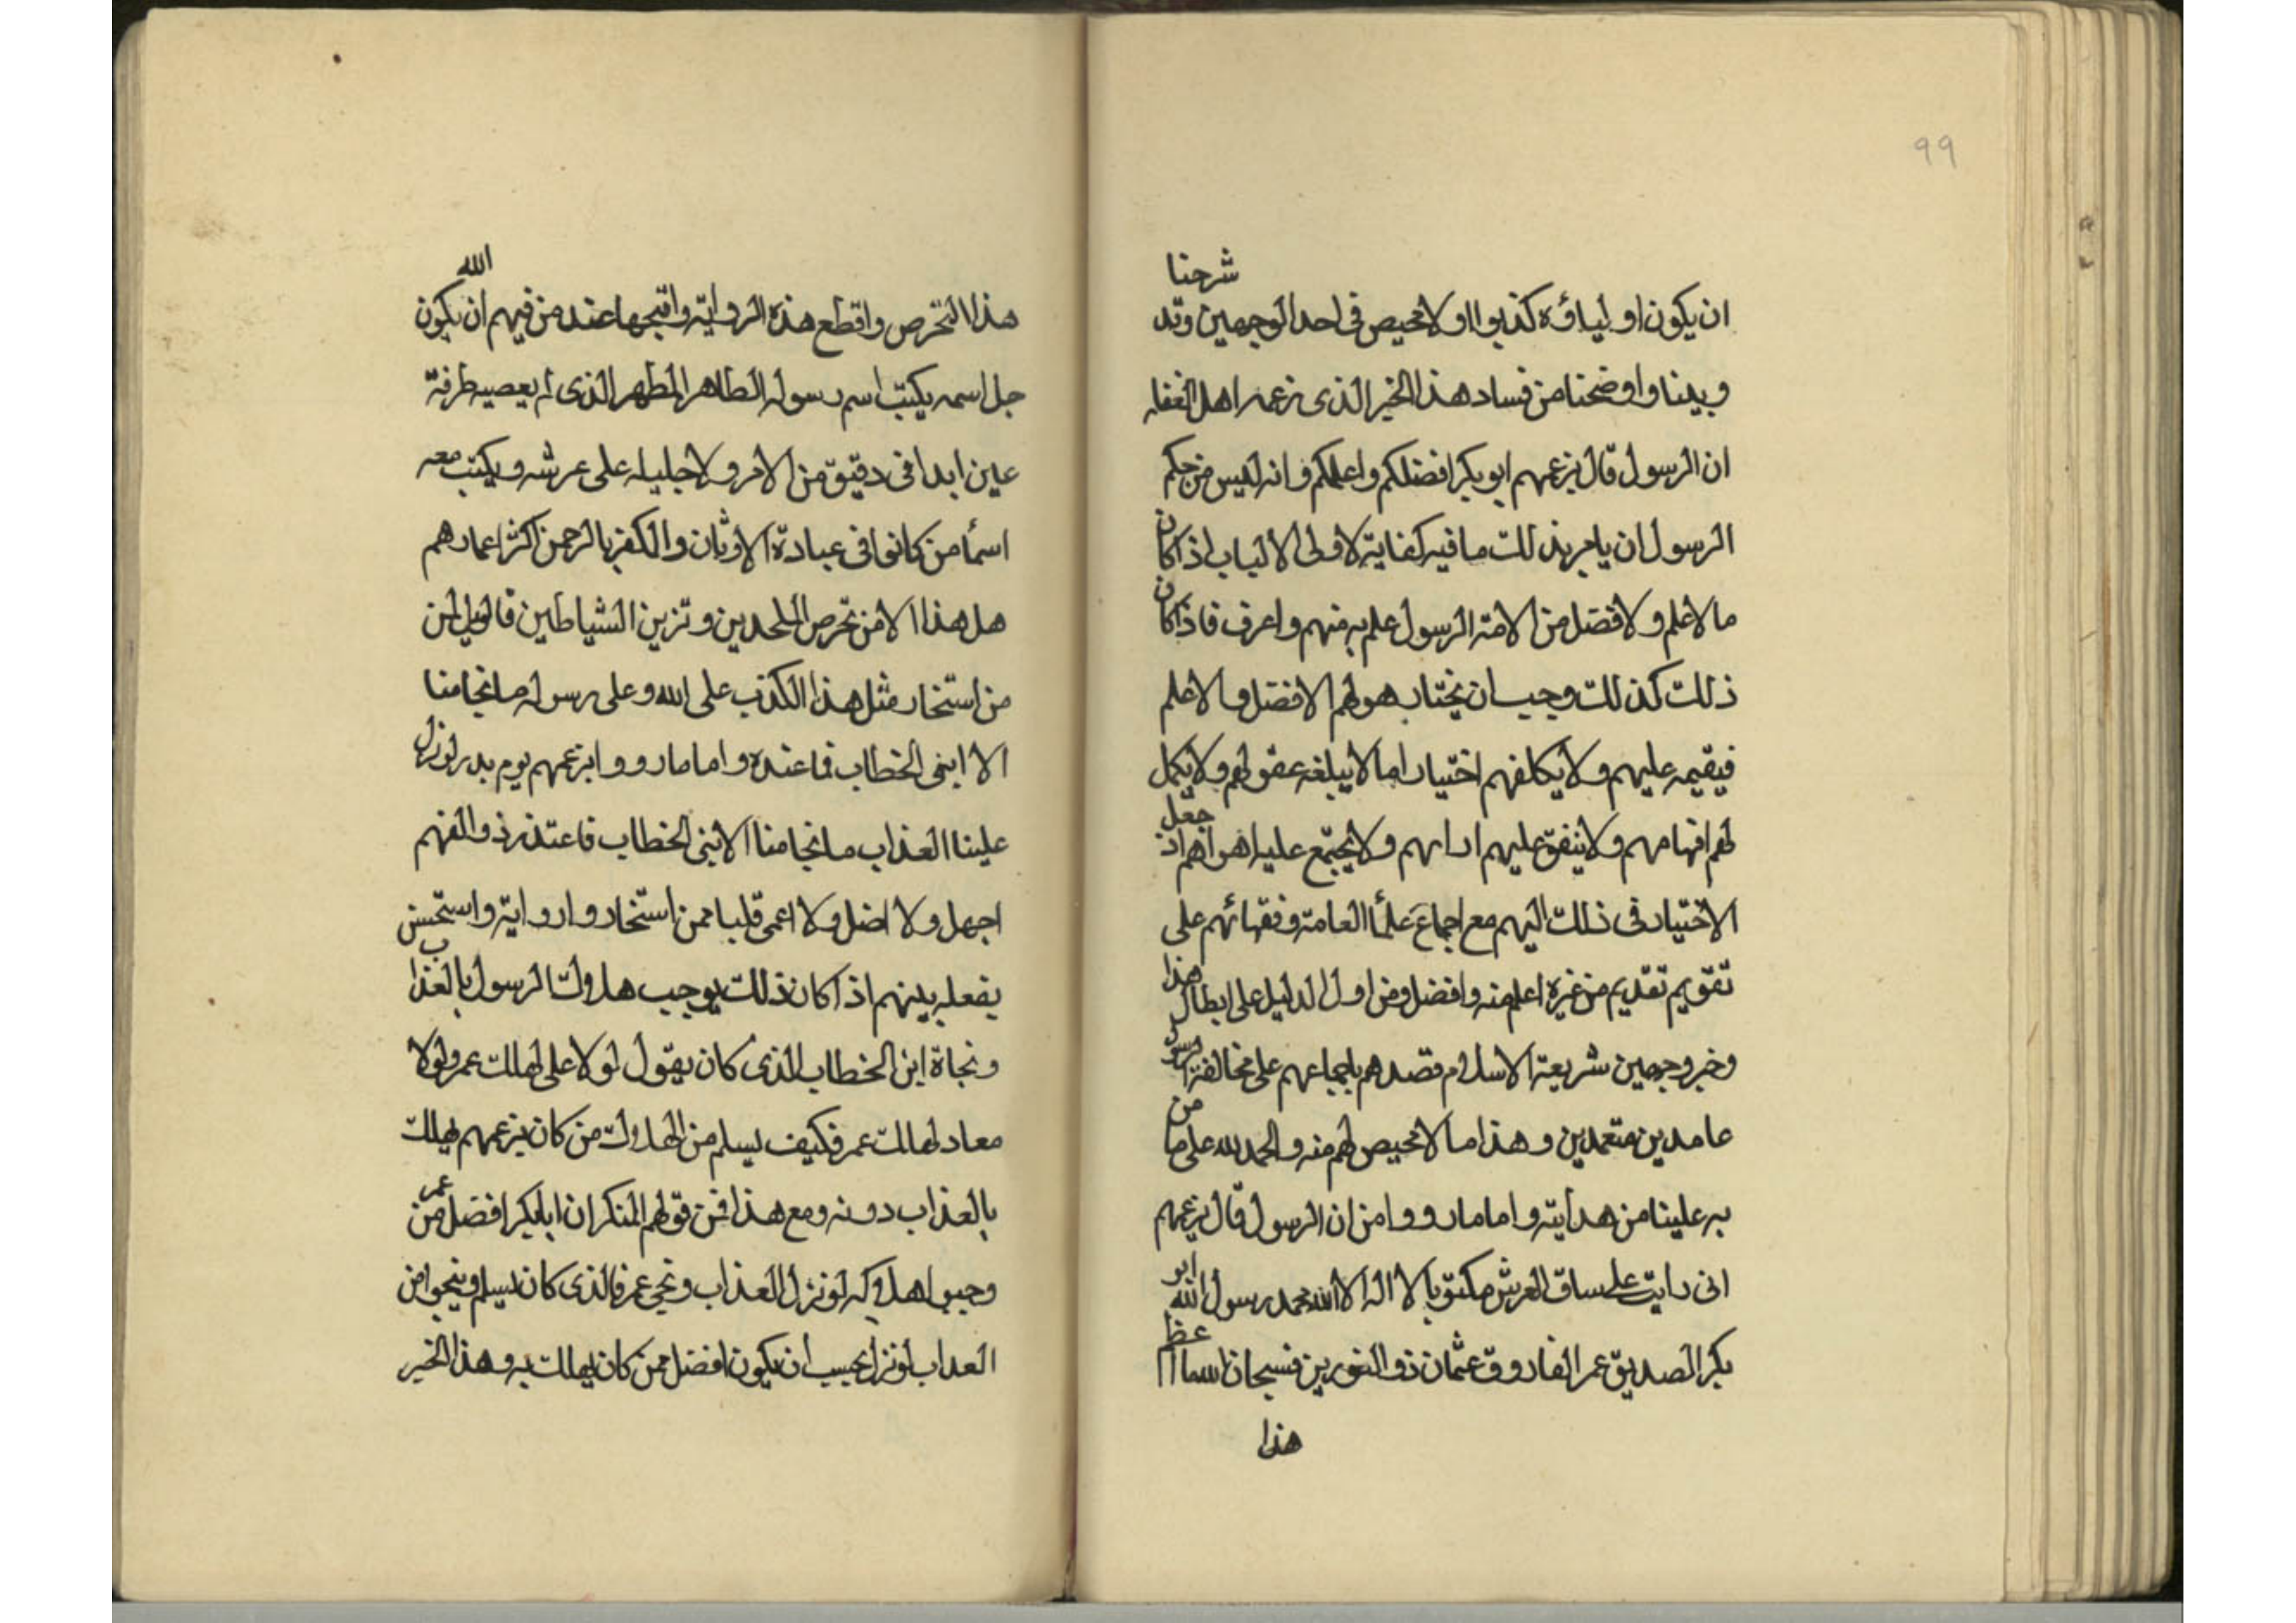 99
ان يكون اولياؤه كذبوا اولا محيص فى احد الوجهين وقد شرحنا
وبينا واوضحنا من فساد هذا الخبر الذى زعم اهل الغفله
ان الرسول قال بزعمهم ابو بكر افضلكم واعلمكم وانه ليس من حكم
الرسول ان يامر بذلك ما فيه كفاية لاولى الالباب اذا كان
ما لاعلم ولافضل من الامة الرسول علم به منهم واعرف فاذا كان
ذلك كذلك وجب ان يختار هو لهم الافضل والاعلم
فيقيمه عليهم ولا يكلفهم اختيار اما لا يبلغه عقولهم ولا يكمل
لهم افهامهم ولا يتفق عليهم اراهم ولا يجتمع عليه اهواهم اذ جعل
الاختيار فى ذلك اليهم مع اجماع علمأ العامة وفقهائهم على
تقويم تقديم من غيره اعلم منه وافضل ومن اول الدليل على ابطال هذا
وخبر وجهين شريعة الاسلام قصدهم باجماعهم على مخالفة الرسول
عامدين متعمدين وهذا ما لا محيص لهم منه والحمد لله على ما من
به علينا من هدايته واما ما رووا من ان الرسول قال بزعمهم
انى رايت على ساق العرش مكتوبا لا اله الا الله محمد رسول الله ابو
بكر الصديق عمر الفاروق عثمان ذو النورين فسبحان الله ما اعظم
هذا
هذا التخرص واقطع هذه الرواية واقبحها عند من فيهم ان يكون الله
جل اسمه يكتب اسم رسوله الطاهر المطهر الذى لم يعصيه طرفة
عين ابدا فى دقيق من الامر ولا جليله على عرشه ويكتب معه
اسمأ من كانوا فى عبادة الاوثان والكفر بالرحمن اكثر اعمارهم
هل هذا الا من تخرص الملحدين وتزيين الشياطين فالويل لمن
من استخار مثل هذا الكذب على الله وعلى رسوله ما نجا منا
الا ابنى الخطاب فاعنده واما ما رووا بزعمهم يوم بدر لو نزل
علينا العذاب ما نجا منا الا بنى الخطاب فاعتذر ذو الفهم
اجهل ولا اضل ولا اعمى قلبا ممن استخار وا رواية واستحسن
يفعله بينهم اذا كان ذلك يوجب هلاك الرسول بالعذاب
ونجاة ابن الخطاب الذى كان يقول لولا على لهلك عمر ولولا
معاد لهلك عمر فكيف يسلم من الهلاك من كان بزعمهم يهلك
بالعذاب دونه ومع هذا فمن قولهم المنكر ان ابابكر افضل من عمر
وجبوا هلاكه لو نزل العذاب ونجى عمر فالذى كان يسلم وينجوا من
العذاب لو نزل يجب ان يكون افضل ممن كان يهلك به وهذا الخبر